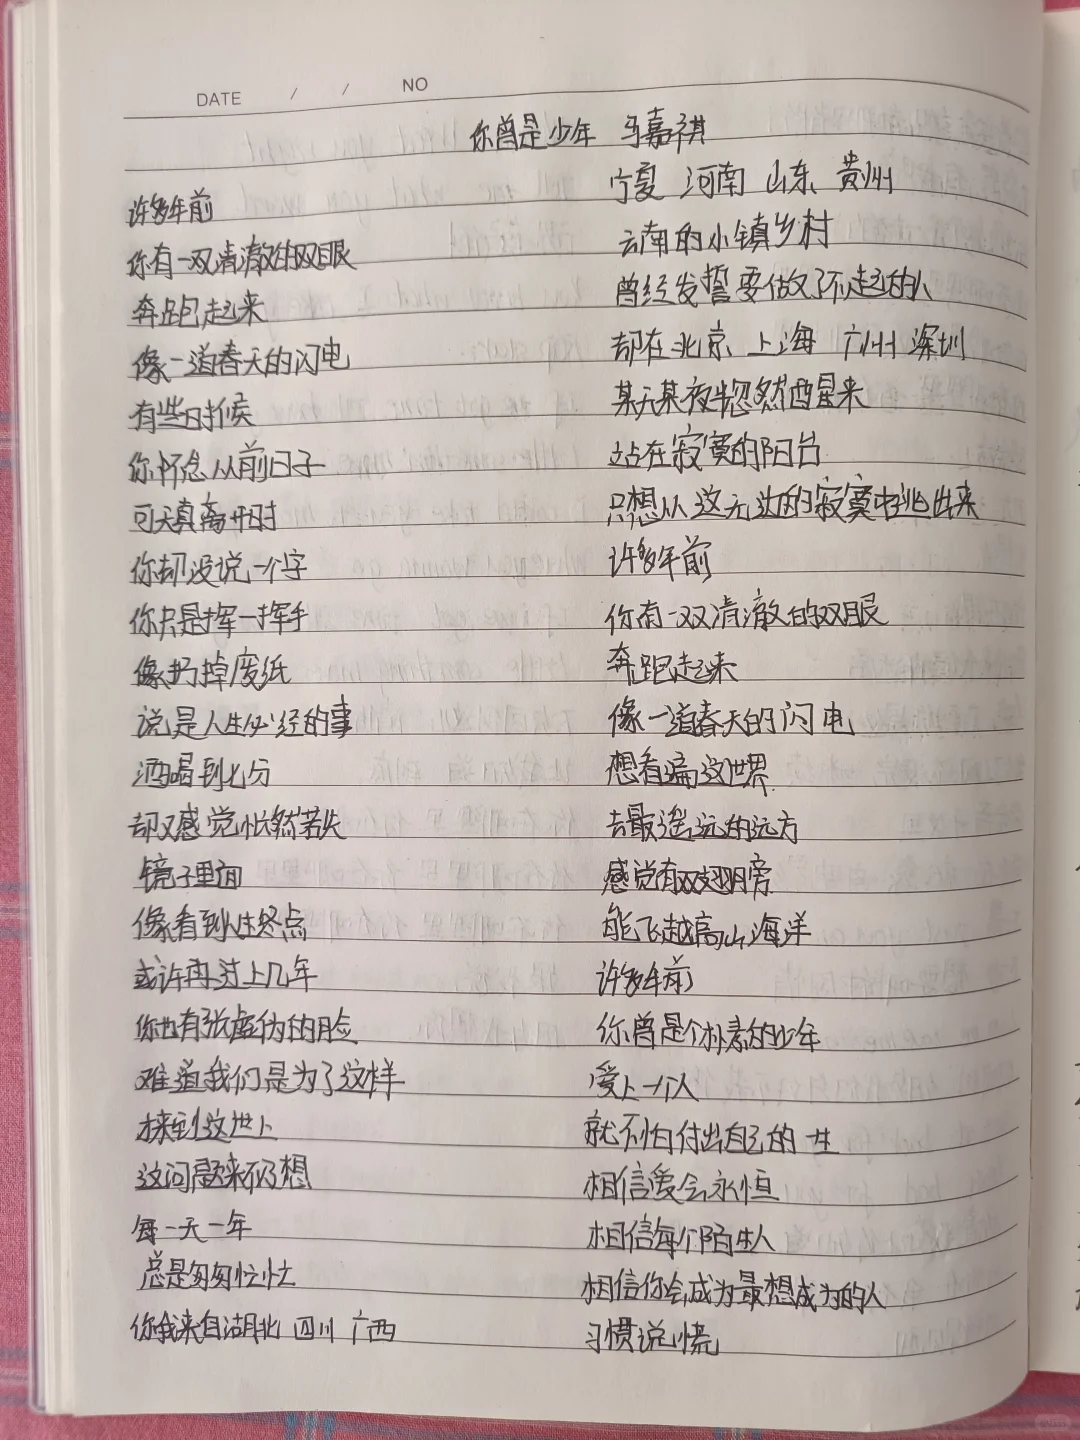 DATE / / NO
你曾是少年 马嘉祺
许多年前
你有一双清澈的双眼
奔跑起来
像一道春天的闪电
有些时候
你怀念从前日子
可天真离开时
你却没说一个字
你只是挥一挥手
像扔掉废纸
说是人生必经的事
酒喝到七分
却又感觉怅然若失
镜子里面
像看到人生终点
或许再过上几年
你也有张虚伪的脸
难道我们是为了这样
来到这世上
这问题来不及想
每一天一年
总是匆匆忙忙
你我来自湖北 四川 广西
宁夏 河南 山东 贵州
云南的小镇乡村
曾经发誓要做了不起的人
却在北京 上海 广州 深圳
某天某夜半忽然醒来
站在寂寞的阳台
只想从这无边的寂寞中逃出来
许多年前
你有一双清澈的双眼
奔跑起来
像一道春天的闪电
想看遍这世界
去最遥远的远方
感觉有双翅膀
能飞越高山海洋
许多年前
你曾是个朴素的少年
爱上一个人
就不怕付出自己的一生
相信爱会永恒
相信每个陌生人
相信你会成为最想成为的人
习惯说慌